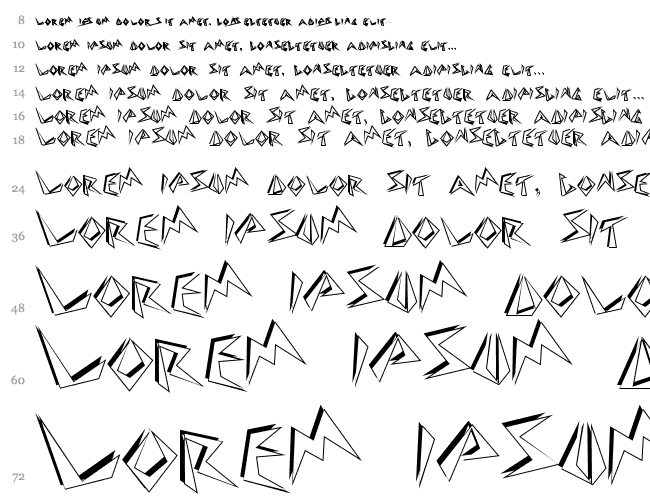 8 LOREM IPSUM DOLOR SIT AMET, CONSECTETUER ADIPISCING ELIT...
10 LOREM IPSUM DOLOR SIT AMET, CONSECTETUER ADIPISCING ELIT...
12 LOREM IPSUM DOLOR SIT AMET, CONSECTETUER ADIPISCING ELIT...
14 LOREM IPSUM DOLOR SIT AMET, CONSECTETUER ADIPISCING ELIT...
16 LOREM IPSUM DOLOR SIT AMET, CONSECTETUER ADIPISCING
18 LOREM IPSUM DOLOR SIT AMET, CONSECTETUER ADIPI
24 LOREM IPSUM DOLOR SIT AMET, CONSE
36 LOREM IPSUM DOLOR SIT
48 LOREM IPSUM DOLO
60 LOREM IPSUM D
72 LOREM IPSUM